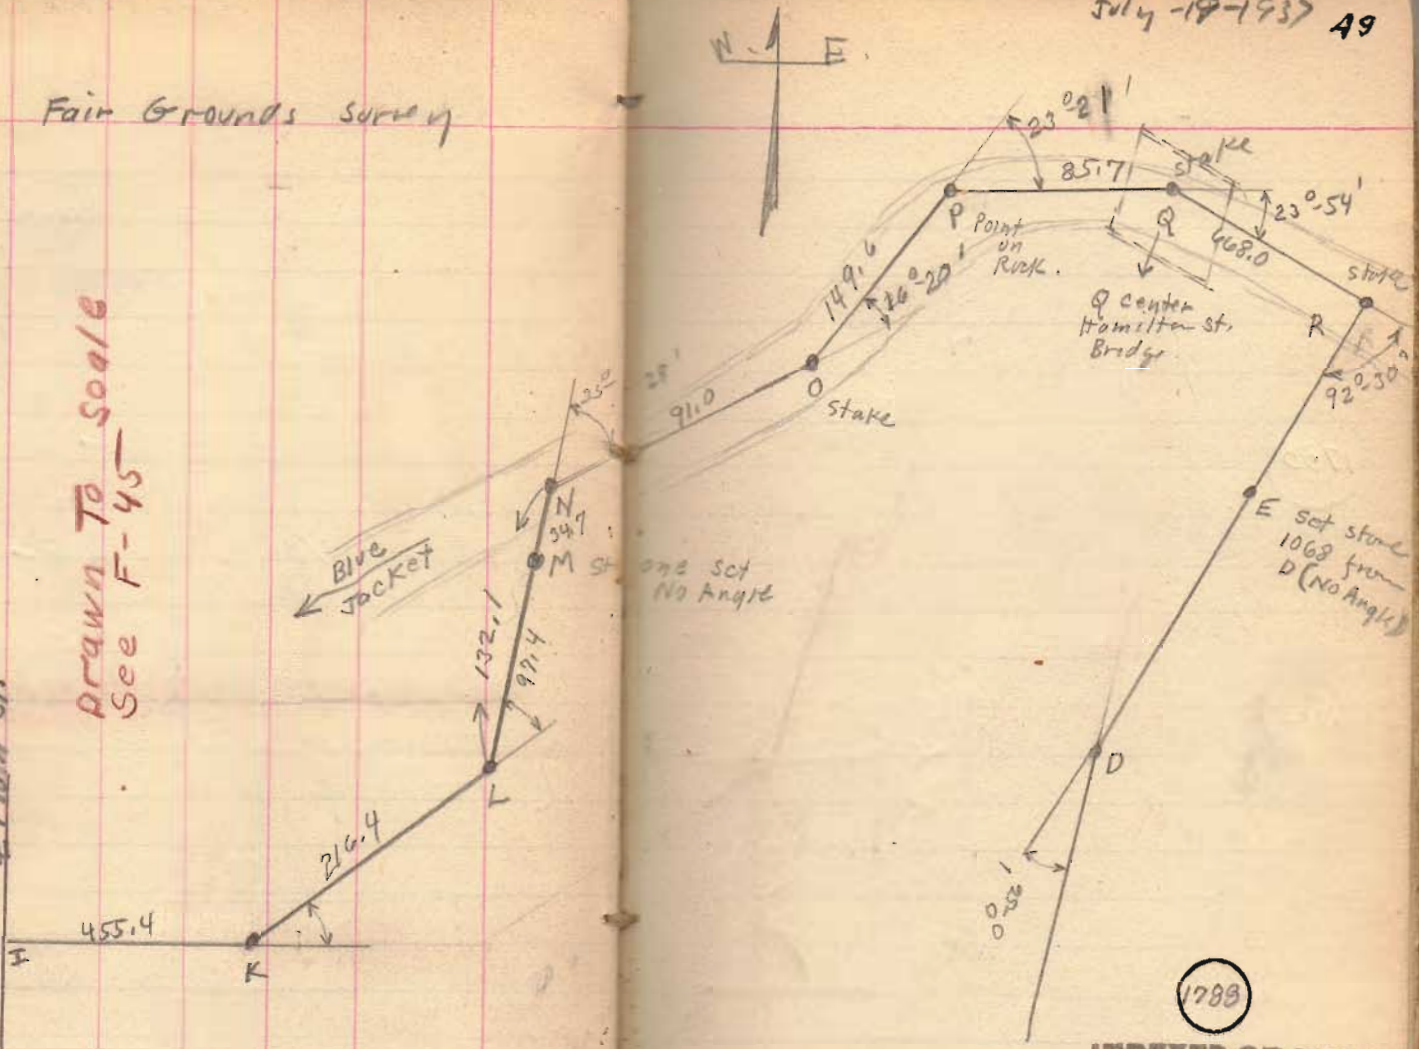 July -19-1937
A9
W. E.
Fair Grounds Survey
Drawn To Scale
See F-45
23°-21'
85.7
Stake
P
Point
on
Rock.
Q
23°-54'
668.0
stake
R
92°-30"
Q center
Hamilton St.
Bridge
149.6
16°-20'
O
Stake
91.0
25°
28'
N
34.7
M Stone Set
No Angle
Blue
Jacket
132.1
97.4
L
216.4
455.4
I
K
E Set stone
1068 from
D (No Angle)
D
0°-52'
1788